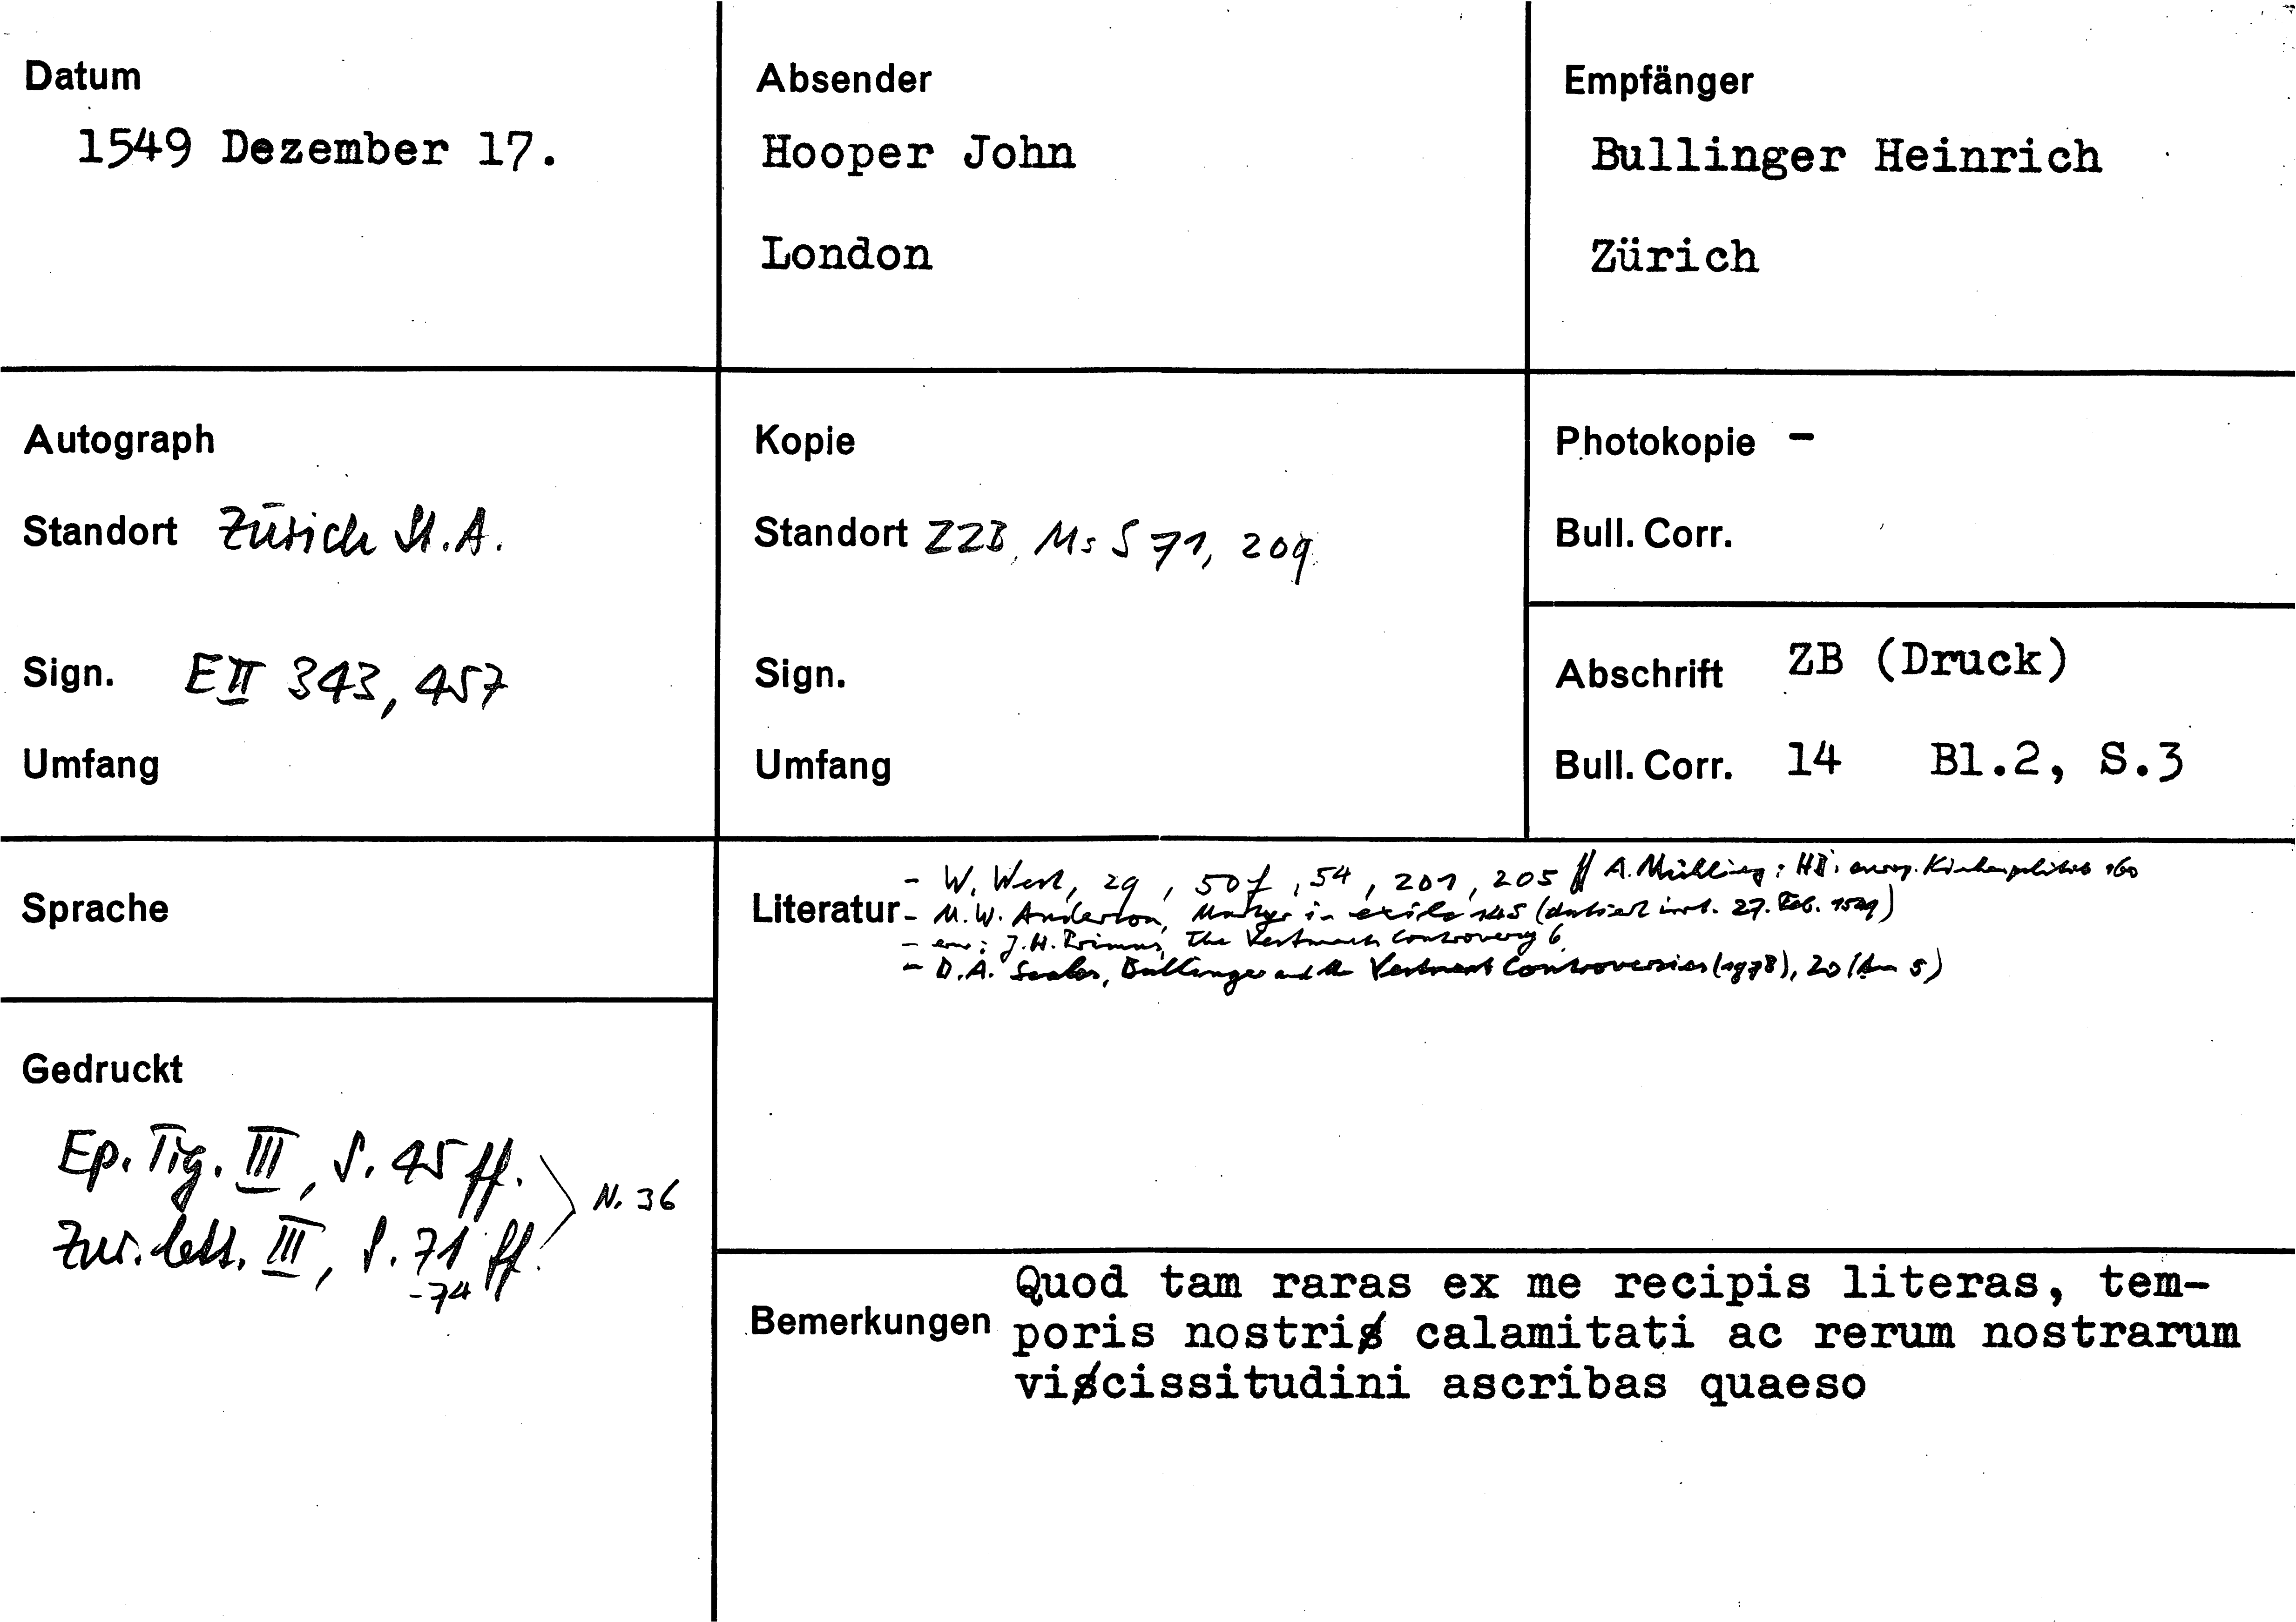 Datum
1549 Dezember 17.
Absender
Hooper John
London
Empfänger
Bullinger Heinrich
Zürich
Autograph
Standort Zürich St.A.
Sign. E II 343, 457
Umfang
Kopie
Standort ZZB, Ms S 71, 209
Sign.
Umfang
Photokopie -
Bull. Corr.
Abschrift ZB (Druck)
Bull. Corr. 14 Bl.2, S.3
Sprache
Gedruckt
Ep. Tig. III, S. 45 ff.
Zur. lett. III, S. 71 ff.
-74
N. 36
Literatur
- W. West, 29, 50f, 54, 201, 205 // A. Mühling: HB: europ. Kirchenpolitik 160
- M.W. Anderson, Martyr in exile 145 (datiert 27. Feb. 1549)
- J.H. Primus, The Vestments Controversy 6
- D.A. Scales, Bullinger and the Vestment Controversies (1978), 20 (Am 5)
Bemerkungen
Quod tam raras ex me recipis literas, tem-
poris nostri calamitati ac rerum nostrarum
vicissitudini ascribas quaeso